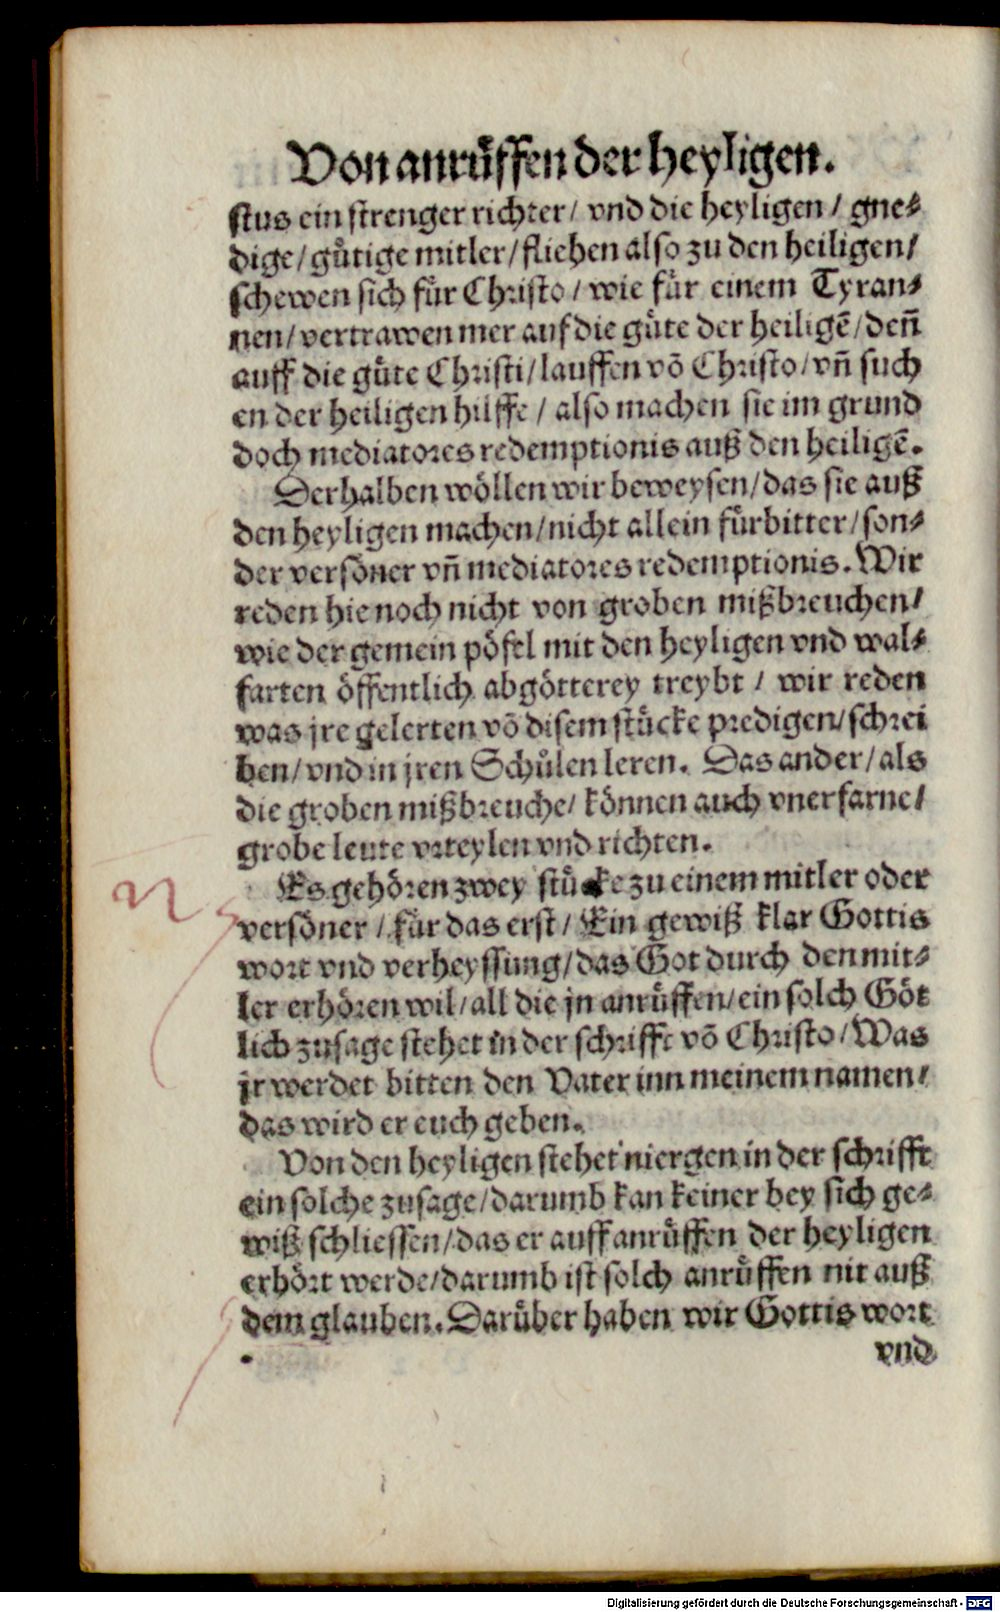 Von anrůffen der heyligen.
stus ein strenger richter/ vnd die heyligen/ gne⸗
dige/ gůtige mitler/ fliehen also zu den heiligen/
schewen sich fůr Christo/ wie fůr einem Tyran⸗
nen/ vertrawen mer auf die gůte der heiligē/ deñ
auff die gůte Christi/ lauffen vō Christo/ vñ such
en der heiligen hilffe/ also machen sie im grund
doch mediatores redemptionis auß den heiligē.
Derhalben wöllen wir beweysen/ das sie auß
den heyligen machen/ nicht allein fůrbitter/ son⸗
der versöner vñ mediatores redemptionis. Wir
reden hie noch nicht von groben mißbreuchen/
wie der gemein pöfel mit den heyligen vnd wal⸗
farten öffentlich abgötterey treybt/ wir reden
was jre gelerten vō disem stůcke predigen/ schrei
ben/ vnd in jren Schůlen leren. Das ander/ als
die groben mißbreuche/ können auch vnerfarne/
grobe leute vrteylen vnd richten.
Es gehören zwey stůcke zu einem mitler oder
versöner/ fůr das erst/ Ein gewiß klar Gottis
wort vnd verheyssung/ das Got durch den mit⸗
ler erhören wil/ all die jn anrůffen/ ein solch Göt
lich zusage stehet in der schrifft vō Christo/ Was
jr werdet bitten den Vater inn meinem namen/
das wird er euch geben.
Von den heyligen stehet niergen in der schrifft
ein solche zusage/ darumb kan keiner bey sich ge⸗
wiß schliessen/ das er auff anrůffen der heyligen
erhört werde/ darumb ist solch anrůffen nit auß
dem glauben. Darůber haben wir Gottis wort
vnd
Digitalisierung gefördert durch die Deutsche Forschungsgemeinschaft - DFG